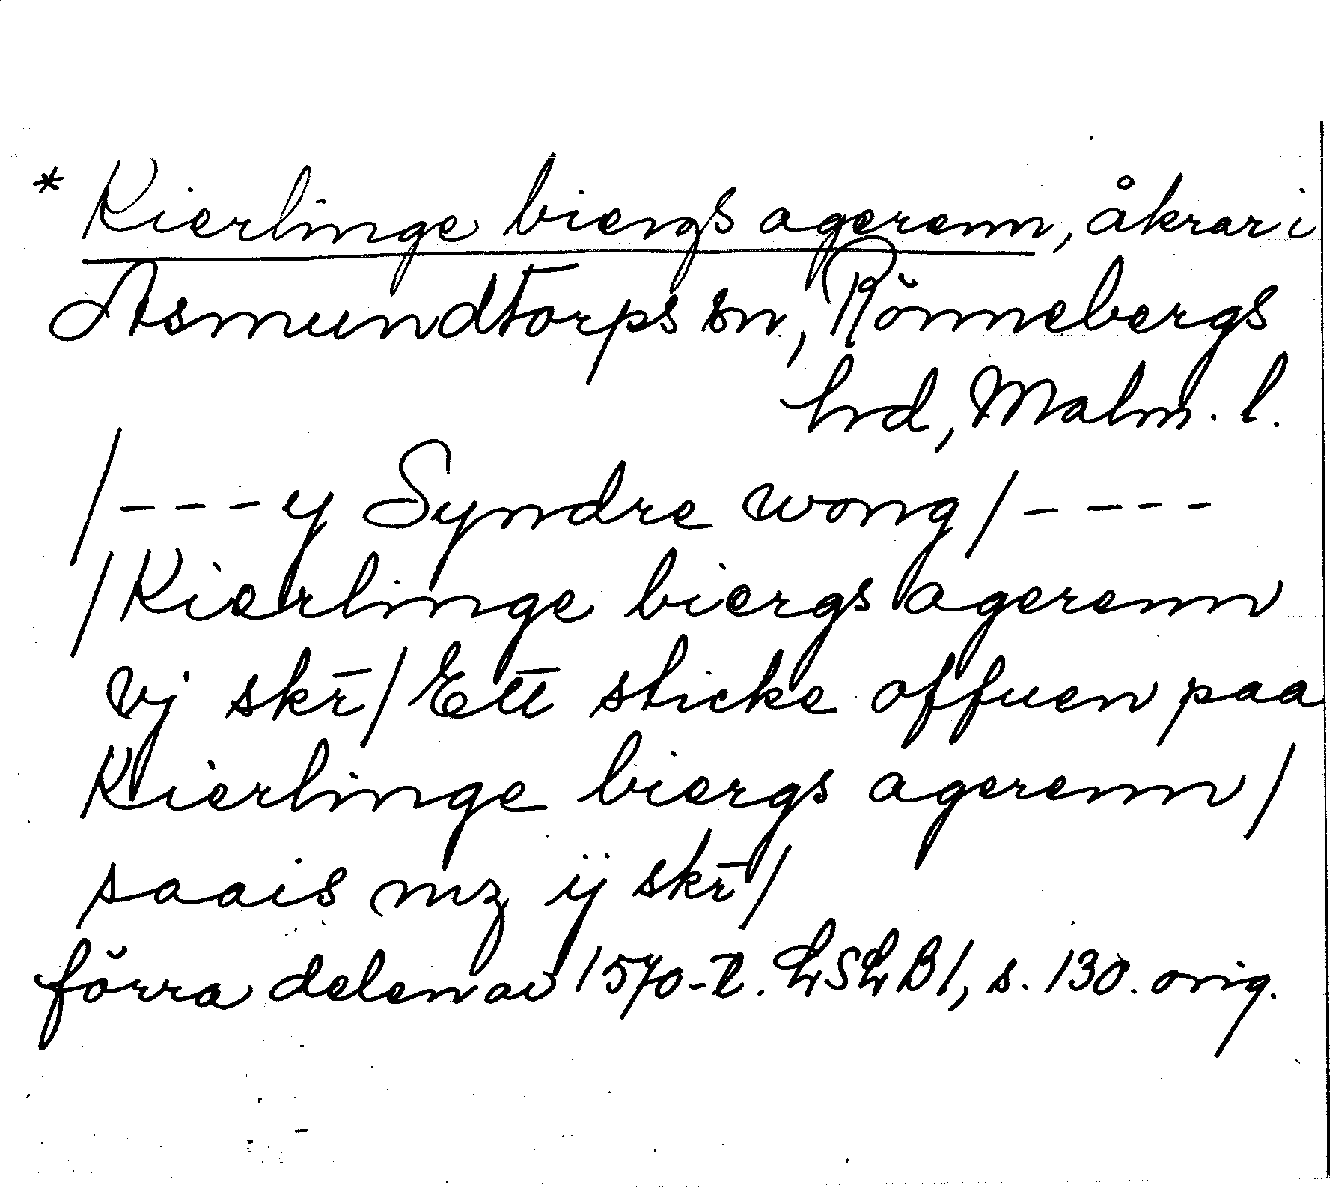 * Kierlinge biergs agerenn, åkrar i
Asmundtorps sn, Rönnebergs
hd, Malm. l.
/ - - - y Syndre wong / - - - -
/ Kierlinge biergs agerenn
vj skr̄ / Ett sticke offuen paa
Kierlinge biergs agerenn /
saais mz ij skr̄ /
förra delen av 1570-t. LSLB 1, s. 130. orig.